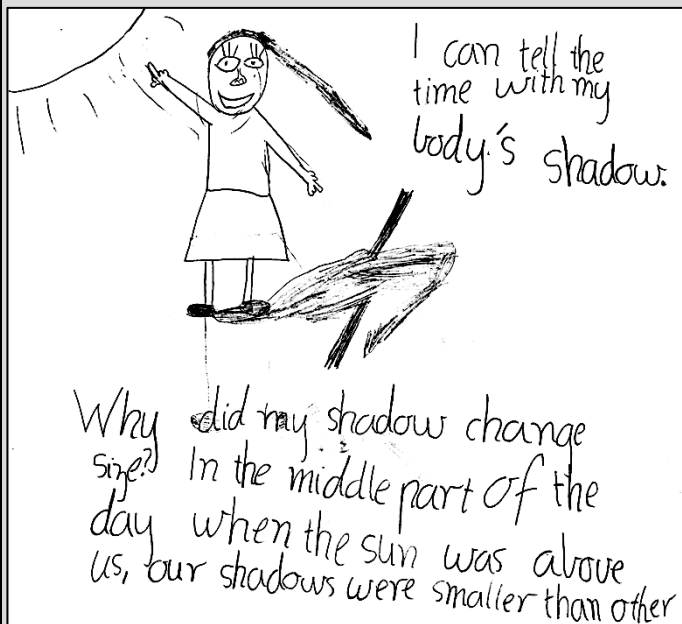 I can tell the
time with my
body's shadow.
Why did my shadow change
size? In the middle part of the
day when the sun was above
us, our shadows were smaller than other